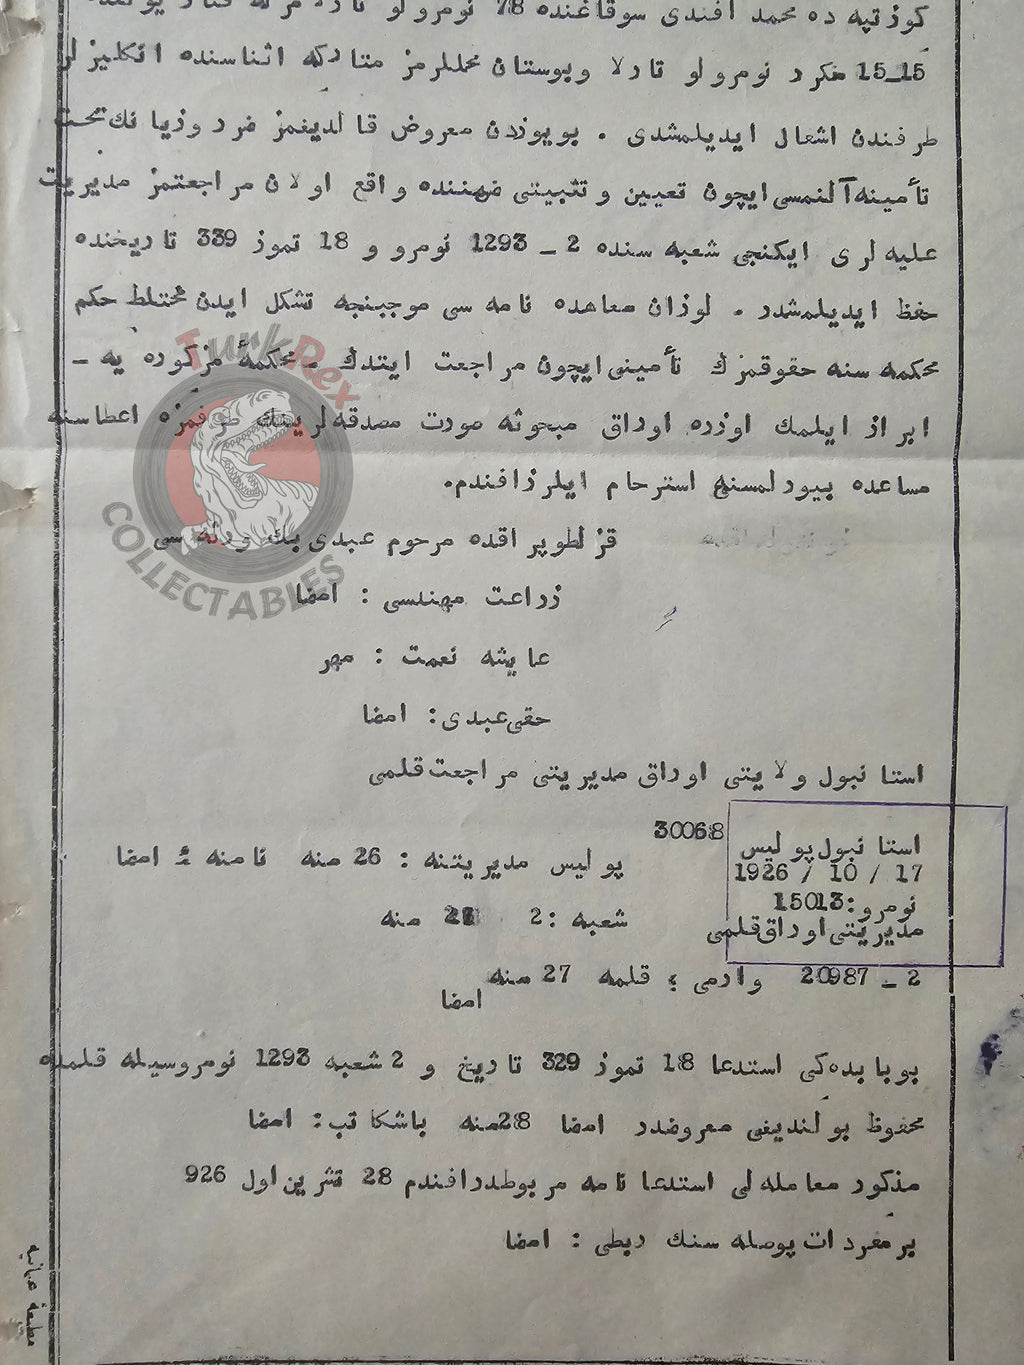 كوزتپه ده محمد افندی سوقاغنده 78 نومرولو تارلامزله فنار يولنده
15ـ15 مكرر نومرولو تارلا وبوستان محللرمز متاركه اثناسنده انكليزلر
طرفندن اشغال ايديلمشدی . بويوزدن معروض قالديغمز ضرر وزيانك تحت
تأمينه آلنمسی ايچون تعيين و تثبيتی ضمننده واقع اولان مراجعتمز مديريت
عليه لری ايكنجی شعبه سنده 2 ـ 1293 نومرو و 18 تموز 339 تاريخنده
حفظ ايديلمشدر . لوزان معاهده نامه سی موجبنجه تشكل ايدن مختلط حكم
محكمه سنه حقوقمزك تأمينی ايچون مراجعت ايتدك . محكمۀ مزكوره يه ـ
ابراز ايلمك اوزره اوراق مبحوثه صورت مصدقه لرينك طرفمزه اعطاسنه
مساعده بيورلمسنی استرحام ايلرز افندم.
قزلطوپراقده مرحوم عبدی بك ورثه سی
زراعت مهندسی : امضا
عايشه نعمت : مهر
حقی عبدی: امضا
استانبول ولايتی اوراق مديريتی مراجعت قلمی
30068
استانبول پوليس
17 / 10 / 1926
نومرو: 15013
مديريتی اوراق قلمی
پوليس مديريتنه : 26 منه نامنه ء امضا
شعبه : 2 منه
2 ـ 20987 وارمی ؛ قلمه 27 منه
امضا
بوبابده كی استدعا 18 تموز 329 تاريخ و 2 شعبه 1293 نومروسيله قلمده
محفوظ بولنديغی معروضدر امضا 28منه باشكاتب: امضا
مذكور معامله لی استدعانامه مربوطدرافندم 28 تشرين اول 926
برمفردات پوصله سنك ربطی : امضا
Turk Rex
COLLECTABLES